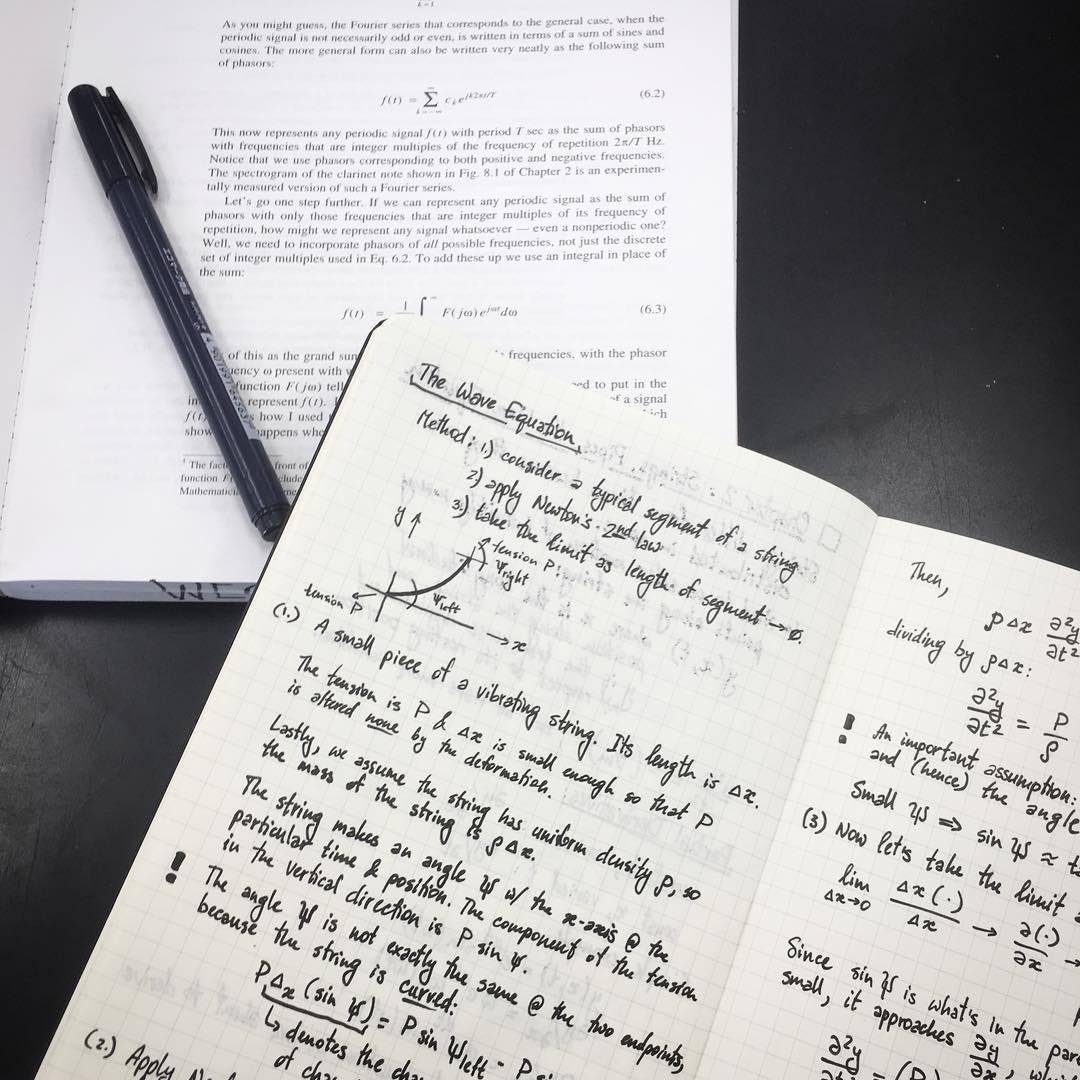 k=1
As you might guess, the Fourier series that corresponds to the general case, when the
periodic signal is not necessarily odd or even, is written in terms of a sum of sines and
cosines. The more general form can also be written very neatly as the following sum
of phasors:
f(t) = ∑ c_k e^{jk2πt/T} (6.2)
k = −∞
This now represents any periodic signal f(t) with period T sec as the sum of phasors
with frequencies that are integer multiples of the frequency of repetition 2π/T Hz.
Notice that we use phasors corresponding to both positive and negative frequencies.
The spectrogram of the clarinet note shown in Fig. 8.1 of Chapter 2 is an experimen-
tally measured version of such a Fourier series.
Let's go one step further. If we can represent any periodic signal as the sum of
phasors with only those frequencies that are integer multiples of its frequency of
repetition, how might we represent any signal whatsoever — even a nonperiodic one?
Well, we need to incorporate phasors of all possible frequencies, not just the discrete
set of integer multiples used in Eq. 6.2. To add these up we use an integral in place of
the sum:
f(t) = 1 ∫ F(jω) e^{jωt} dω (6.3)
of this as the grand sum frequencies, with the phasor
uency ω present with
function F(jω) tell ed to put in the
in represent f(t). of a signal
f(t) how I used ich
show appens whe
1 The fact front of
function F clude
Mathematic
The Wave Equation
Method: 1.) consider a typical segment of a string
2) apply Newton's 2nd law
3.) take the limit as length of segment → 0.
y
tension P
ψright
tension P
ψleft
→ x
(1.) A small piece of a vibrating string. Its length is Δx.
The tension is P & Δx is small enough so that P
is altered none by the deformation.
Lastly, we assume the string has uniform density ρ, so
the mass of the string is ρΔx.
The string makes an angle ψ w/ the x-axis @ the
particular time & position. The component of the tension
in the vertical direction is P sin ψ.
! The angle ψ is not exactly the same @ the two endpoints,
because the string is curved:
PΔx (sin ψ) = P sin ψleft - P
↳ denotes the
of
(2.) Apply
Then,
ρΔx ∂²y
∂t²
dividing by ρΔx:
∂²y = P
∂t² ρ
! An important assumption:
and (hence) the angle
Small ψ ⇒ sin ψ ≈
(3) Now let's take the limit
lim Δx(·) → ∂(·) →
Δx→0 Δx ∂x
Since sin ψ is what's in the
small, it approaches ∂y
∂x,
∂²y